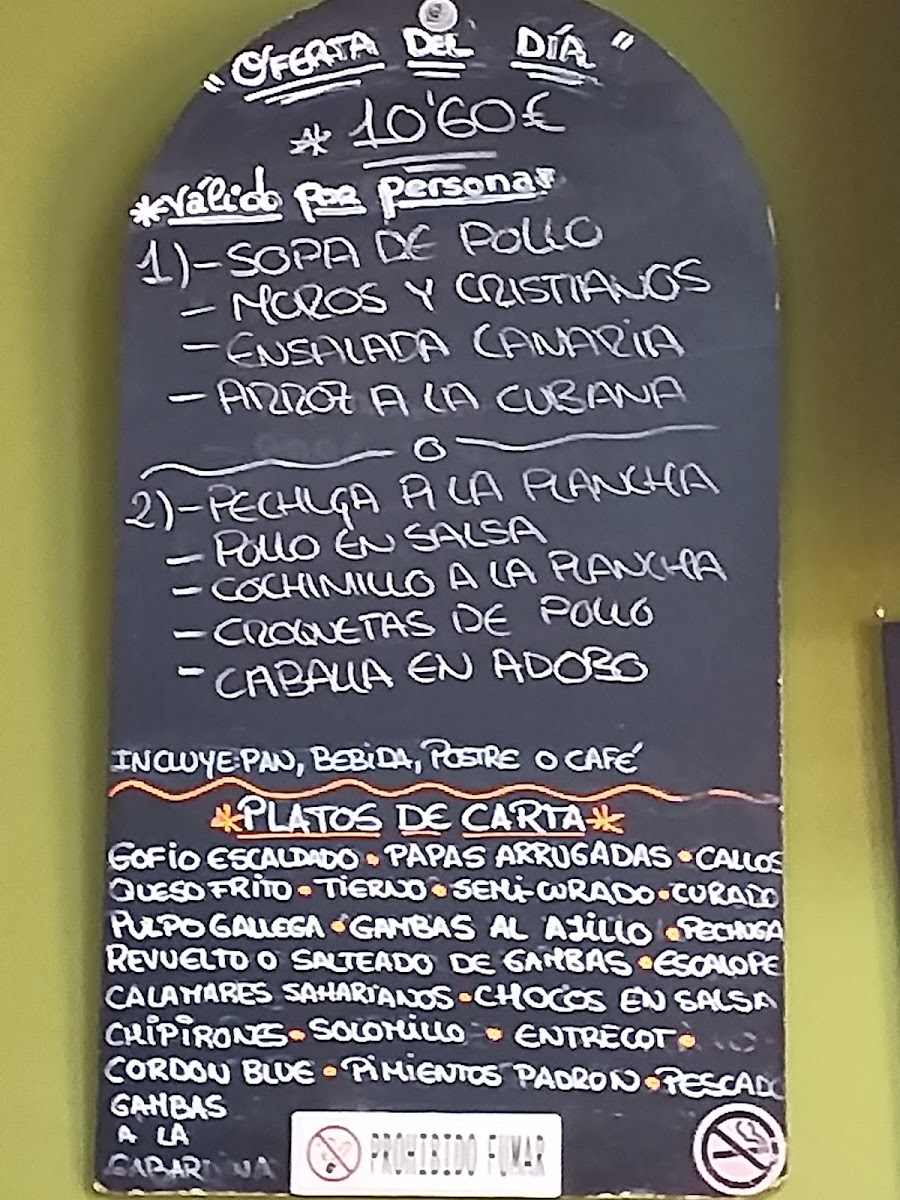 "OFERTA DEL DÍA"
* 10'60€
*Válido por persona*
1)-SOPA DE POLLO
- MOROS Y CRISTIANOS
- ENSALADA CANARIA
- ARROZ A LA CUBANA
O
2)-PECHUGA A LA PLANCHA
- POLLO EN SALSA
- COCHINILLO A LA PLANCHA
- CROQUETAS DE POLLO
- CABALLA EN ADOBO
INCLUYE:PAN, BEBIDA, POSTRE O CAFÉ
*PLATOS DE CARTA*
GOFIO ESCALDADO • PAPAS ARRUGADAS • CALLOS
QUESO FRITO • TIERNO • SEMI-CURADO • CURADO
PULPO GALLEGA • GAMBAS AL AJILLO • PECHUGA
REVUELTO O SALTEADO DE GAMBAS • ESCALOPE
CALAMARES SAHARIANOS • CHOCOS EN SALSA
CHIPIRONES • SOLOMILLO • ENTRECOT •
CORDON BLUE • PIMIENTOS PADRON • PESCADO
GAMBAS
A LA
GABARDINA
PROHIBIDO FUMAR